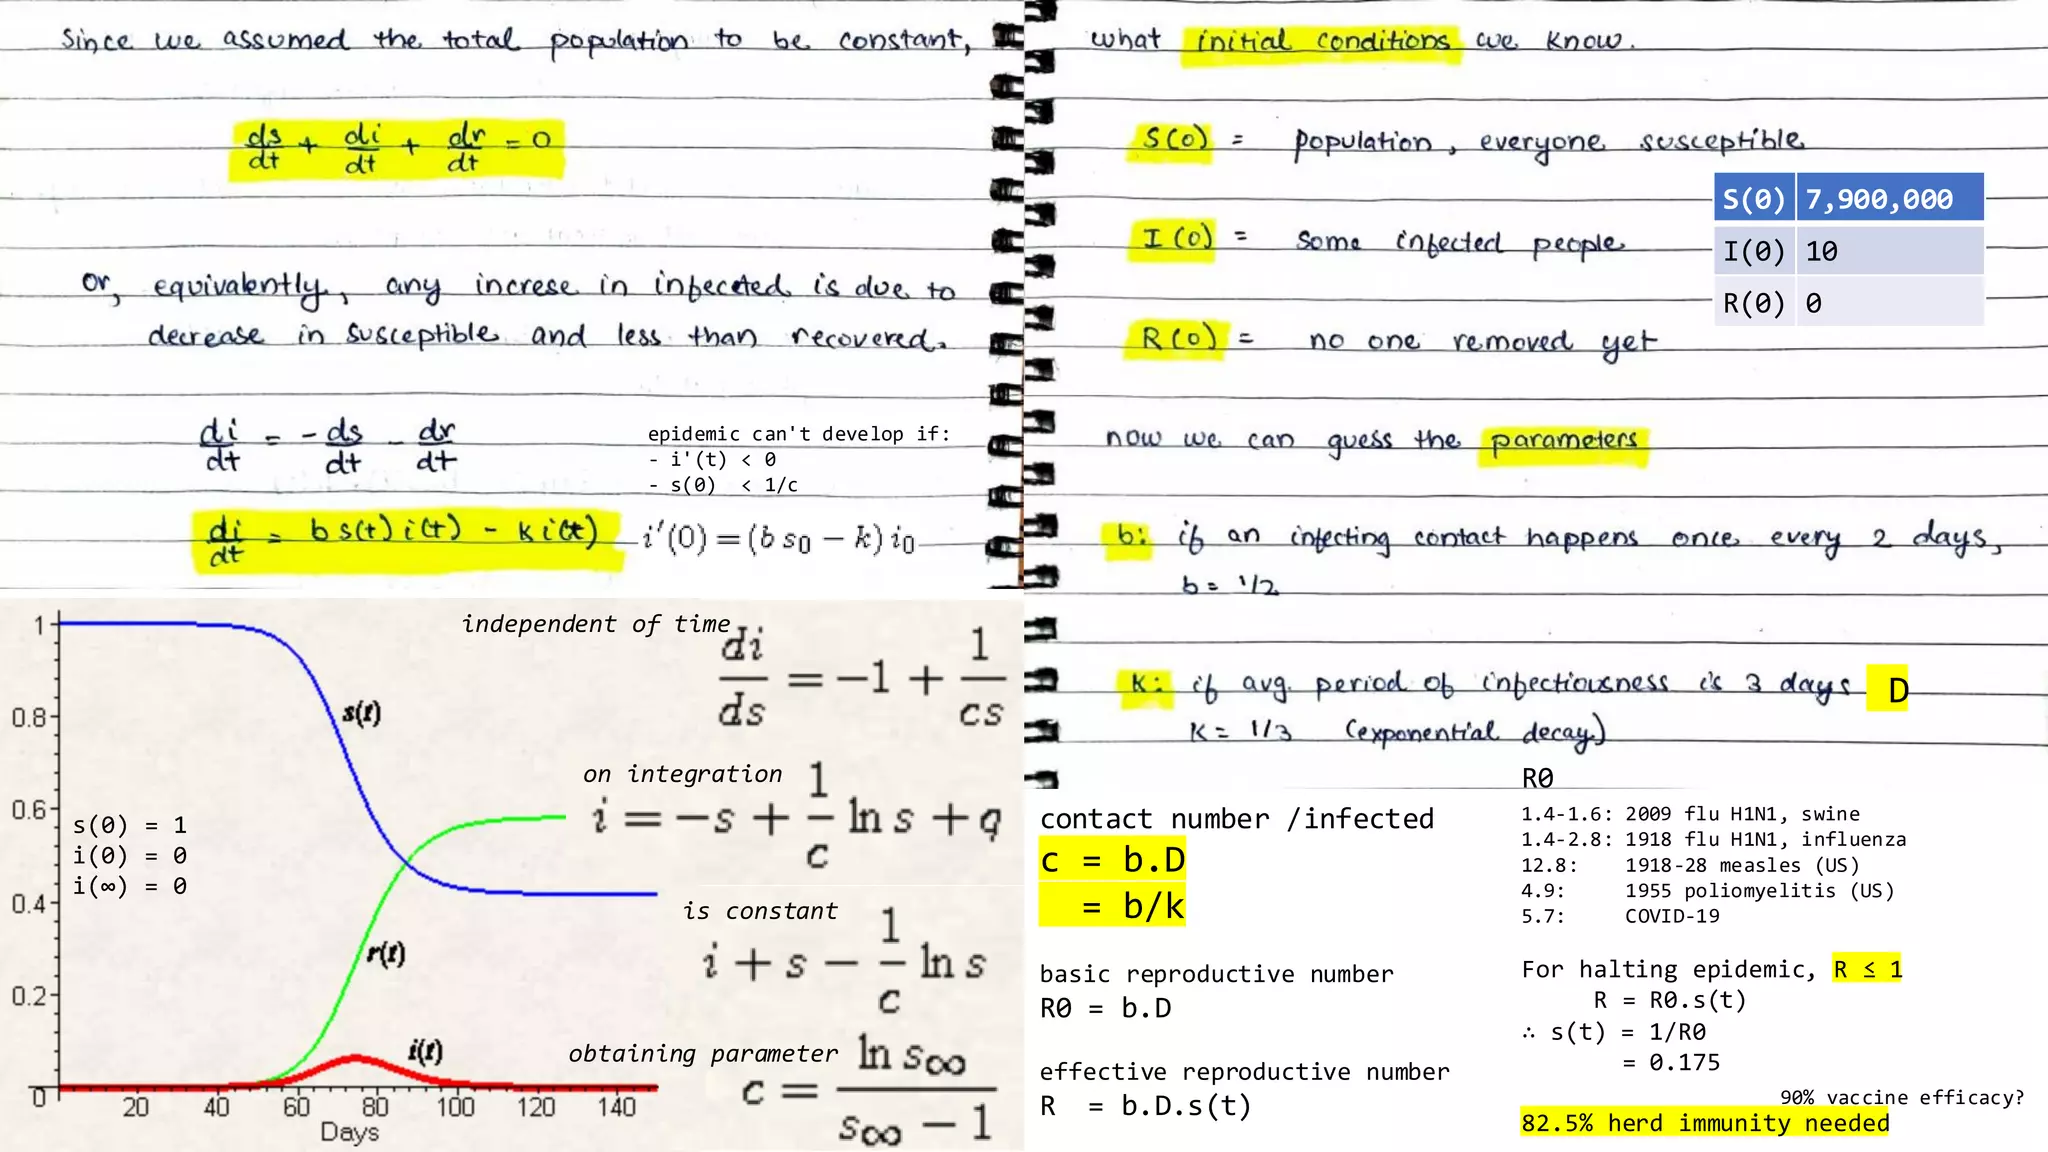 Since we assumed the total population to be constant,
ds/dt + di/dt + dr/dt = 0
Or, equivalently, any increse in infeceted is due to
decrease in susceptible and less than recovered.
di/dt = - ds/dt - dr/dt
di/dt = b s(t) i(t) - k i(t)
epidemic can't develop if:
- i'(t) < 0
- s(0) < 1/c
i'(0) = (b s₀ − k) i₀
what initial conditions we know.
S(0) = population, everyone susceptible
I(0) = some infected people
R(0) = no one removed yet
S(0) 7,900,000
I(0) 10
R(0) 0
now we can guess the parameters
b: if an infecting contact happens once every 2 days,
b = 1/2
k: if avg. period of infectiousness is 3 days D
k = 1/3 (exponential decay)
1
0.8
0.6
0.4
0.2
0
20 40 60 80 100 120 140
Days
s(t)
r(t)
i(t)
s(0) = 1
i(0) = 0
i(∞) = 0
independent of time
di/ds = −1 + 1/cs
on integration
i = −s + 1/c ln s + q
is constant
i + s − 1/c ln s
obtaining parameter
c = ln s∞ / s∞ − 1
contact number /infected
c = b.D
= b/k
basic reproductive number
R0 = b.D
effective reproductive number
R = b.D.s(t)
R0
1.4-1.6: 2009 flu H1N1, swine
1.4-2.8: 1918 flu H1N1, influenza
12.8: 1918-28 measles (US)
4.9: 1955 poliomyelitis (US)
5.7: COVID-19
For halting epidemic, R ≤ 1
R = R0.s(t)
∴ s(t) = 1/R0
= 0.175
90% vaccine efficacy?
82.5% herd immunity needed